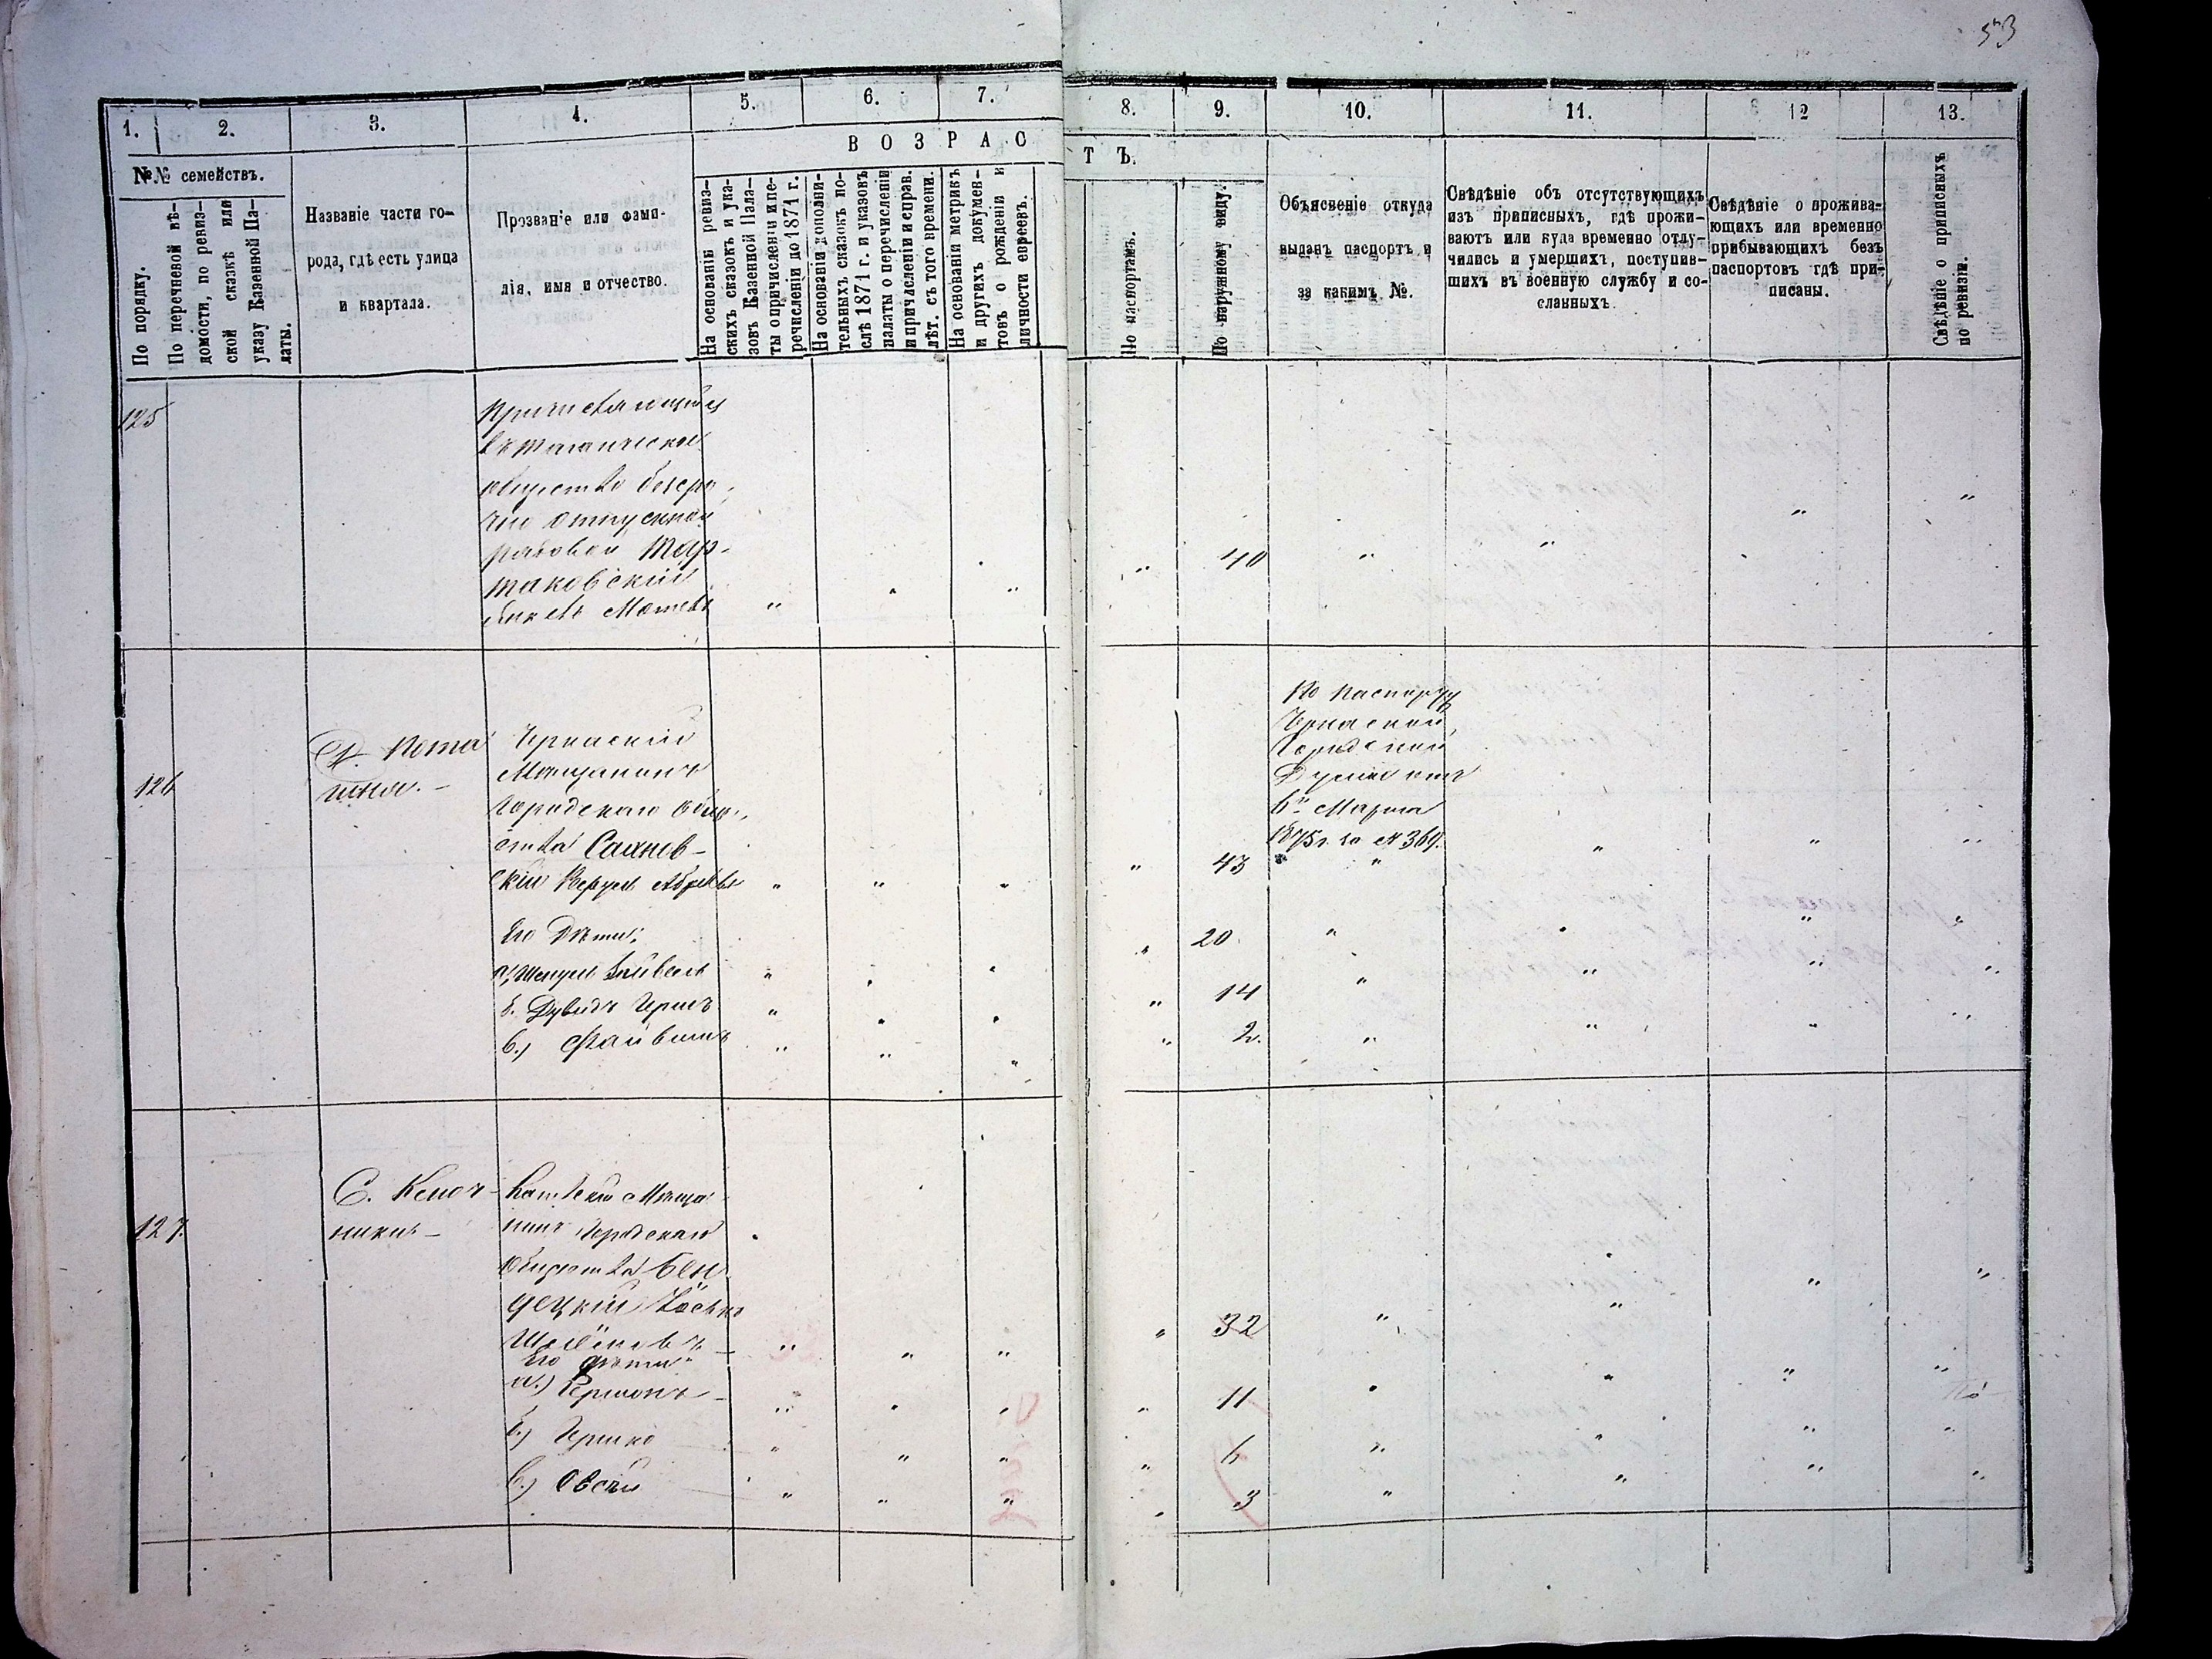 53
1. 2. 3. 4. 5. 6. 7. 8. 9. 10. 11. 12 13.
ВОЗРАСТЪ.
№№ семействъ.
По порядку.
По перечневой вѣ-
домости, по ревиз-
ской сказкѣ или
указу Казенной Па-
латы.
Названіе части го-
рода, гдѣ есть улица
и квартала.
Прозваніе или фами-
лія, имя и отчество.
На основаніи ревиз-
скихъ сказокъ и ука-
зовъ Казенной Пала-
ты о причисленіи и пе-
речисленіи до 1871 г.
На основаніи дополни-
тельныхъ сказокъ по-
слѣ 1871 г. и указовъ
палаты о перечисленіи
и причисленіи и справ.
лѣт. съ того времени.
На основаніи метрикъ
и другихъ докумен-
товъ о рожденіи и
личности евреевъ.
По паспортамъ.
По наружному виду.
Объясненіе откуда
выданъ паспортъ и
за какимъ №.
Свѣдѣніе объ отсутствующихъ
изъ приписныхъ, гдѣ прожи-
ваютъ или куда временно отлу-
чились и умершихъ, поступив-
шихъ въ военную службу и со-
сланныхъ.
Свѣдѣніе о прожива-
ющихъ или временно
прибывающихъ безъ
паспортовъ гдѣ при-
писаны.
Свѣдѣніе о приписныхъ
по ревизіи.
125
общество безсро-
чно отпускной
рядовой Тар-
таковскій
40
126
Черкаскій
Мѣщанинъ
Городскаго обще-
ства Сахнов-
скій
43
По паспорту
Черкаской
Городской
Думы отъ
6го Марта
1875 г. за № 369.
Его Дѣти:
20
б. Дувидъ Гершъ
14
в.) Файвишъ
2.
127.
С. Ключ-
ники
Мѣща-
нинъ Городскаго
общества Бен-
децкій
32
Его дѣти
а.) Гершонъ
11
б.) Гершко
6
в.) Овсѣй
3